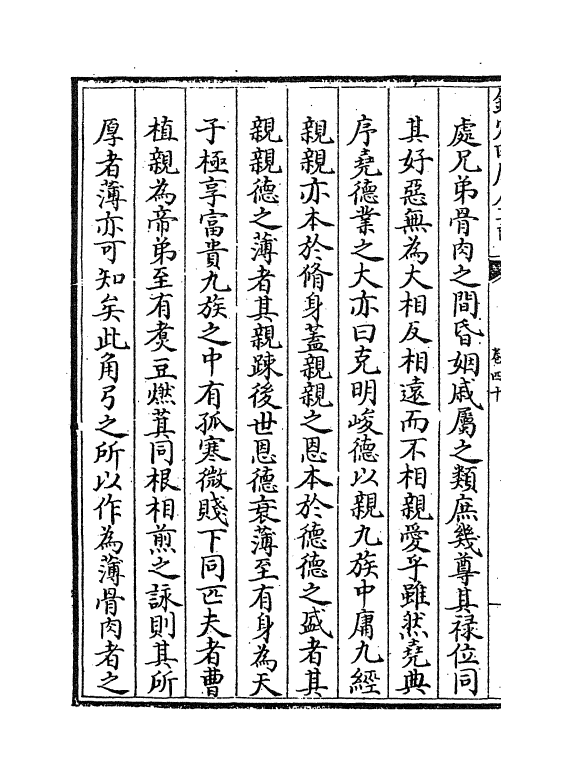 欽定四庫全書
卷四十
處兄弟骨肉之間昏姻戚屬之類庶幾尊其禄位同
其好惡無為大相反相逺而不相親愛乎雖然堯典
序堯德業之大亦曰克明峻德以親九族中庸九經
親親亦本於脩身蓋親親之恩本於德德之盛者其
親親德之薄者其親踈後世恩德衰薄至有身為天
子極享富貴九族之中有孤寒微賤下同匹夫者曹
植親為帝弟至有煑豆燃萁同根相煎之詠則其所
厚者薄亦可知矣此角弓之所以作為薄骨肉者之